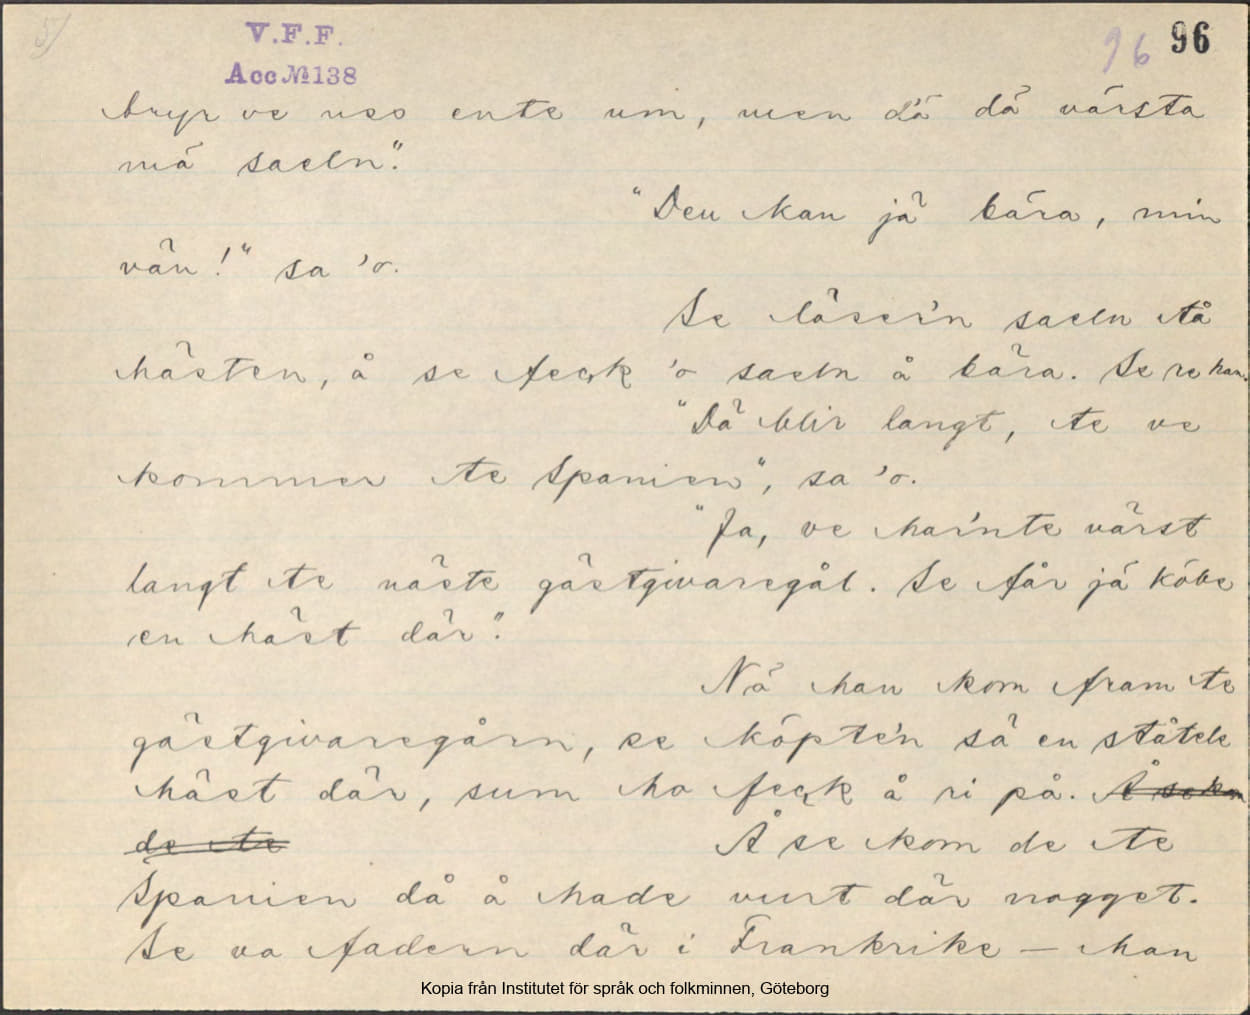 5/
V.F.F.
Acc № 138
96 96
bryr ve uss ente um, men dä dä värsta
mä saeln".
"Den kan jä bära, min
vän!" sa 'o.
Se löser'n saeln tå
hästen, å se feck 'o saeln å bära. Se re han.
"Dä blir langt, te ve
kommer te Spanien", sa 'o.
"Ja, ve har'nte värst
langt te näste gästgivaregål. Se får jä köbe
en häst där".
Nä han kom fram te
gästgivaregårn, se köpte'n sä en ståtele
häst där, sum ho feck å ri på. Å se kom
de te
Å se kom de te
Spanien då å hade vurt där nogget.
Se va fadern där i Frankrike — han
Kopia från Institutet för språk och folkminnen, Göteborg